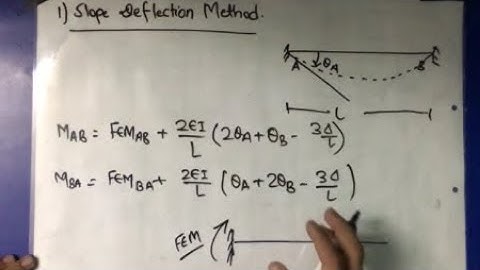 1) Slope Deflection Method.
A θA B
L
MAB = FEMAB + 2EI/L (2θA + θB - 3Δ/L)
MBA = FEMBA + 2EI/L (θA + 2θB - 3Δ/L)
FEM